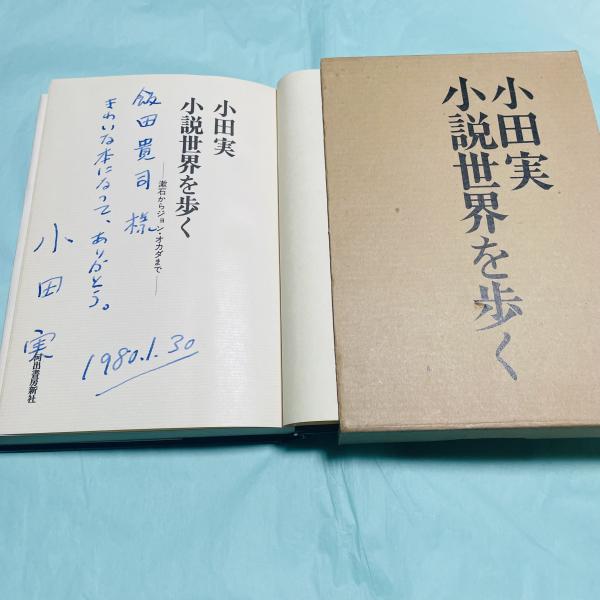 小田実
小説世界を歩く
——漱石からジョン・オカダまで——
飯田貴司様
きれいな本になって、ありがとう。
小田実
1980.1.30
河出書房新社
小田実
小説世界を歩く